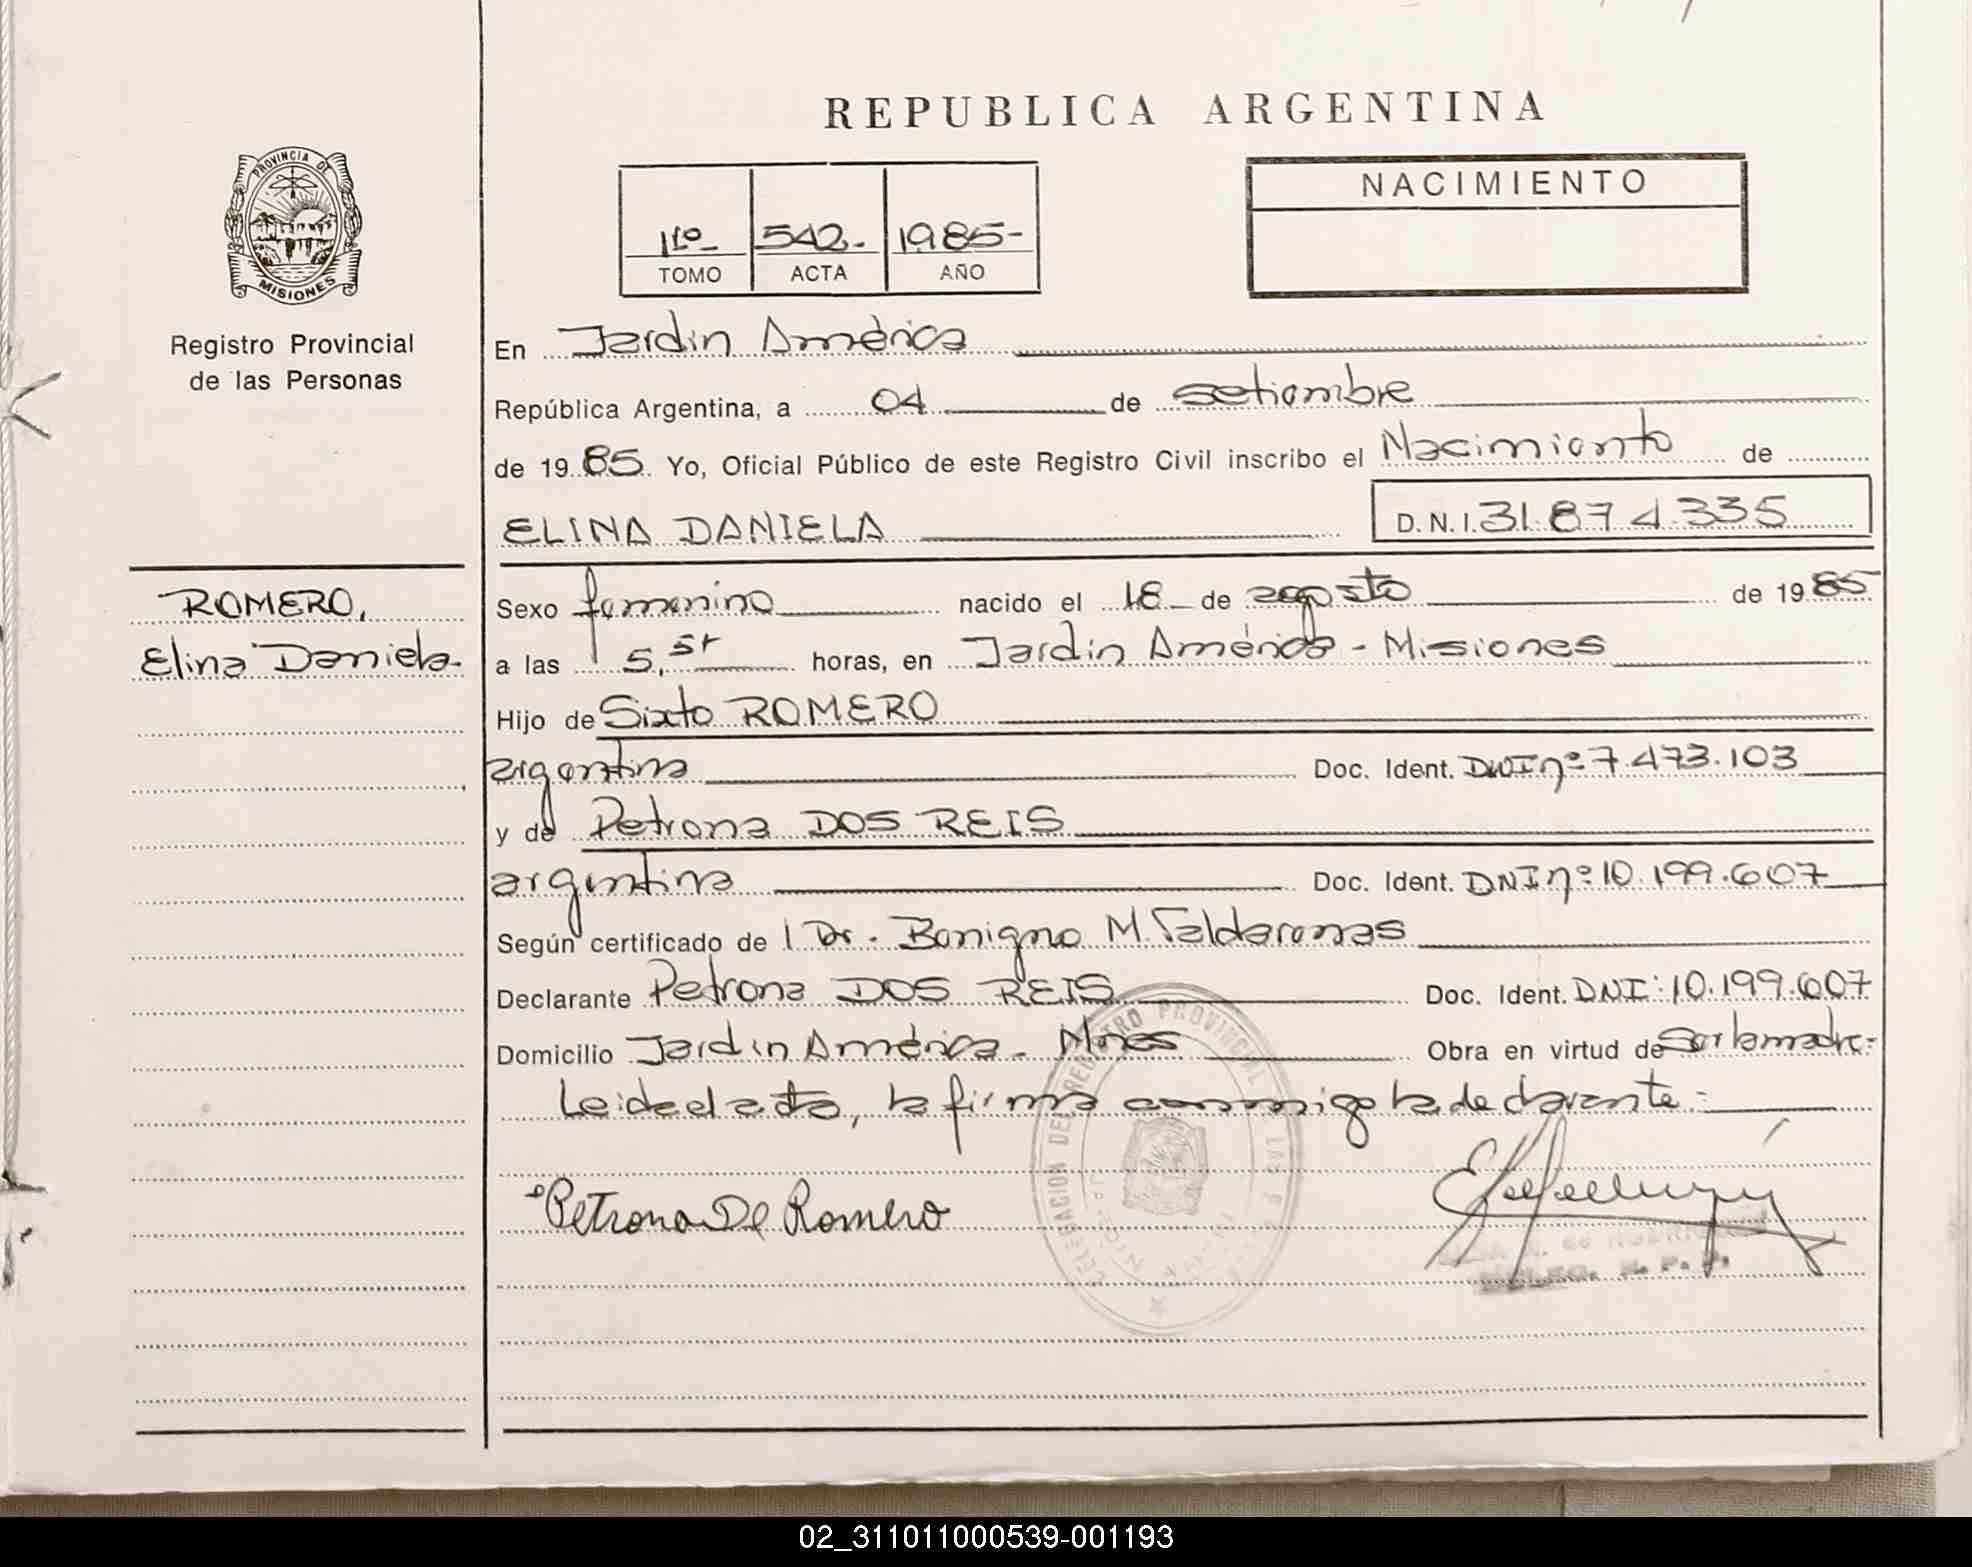 REPUBLICA ARGENTINA
PROVINCIA DE
MISIONES
Registro Provincial
de las Personas
1ro- 542.- 1985-
TOMO ACTA AÑO
NACIMIENTO
En Jardin América
República Argentina, a 04 de setiembre
de 1985. Yo, Oficial Público de este Registro Civil inscribo el Nacimiento de
ELINA DANIELA D.N.I. 31.874.335
ROMERO,
Elina Daniela.
Sexo femenino nacido el 18 de agosto de 1985
a las 5, horas, en Jardin América - Misiones
Hijo de Sixto ROMERO
argentina Doc. Ident. DNI nº 7.473.103
y de Petrona DOS REIS
argentina Doc. Ident. DNI nº 10.199.607
Según certificado de l Dr. Benigno M.
Declarante Petrona DOS REIS Doc. Ident. DNI: 10.199.607
Domicilio Jardin América - Mnes Obra en virtud de Ser la madre.-
Leida el acta, la firma conmigo la declarante.-
Petrona De Romero
REGISTRO PROVINCIAL DE LAS
02_311011000539-001193